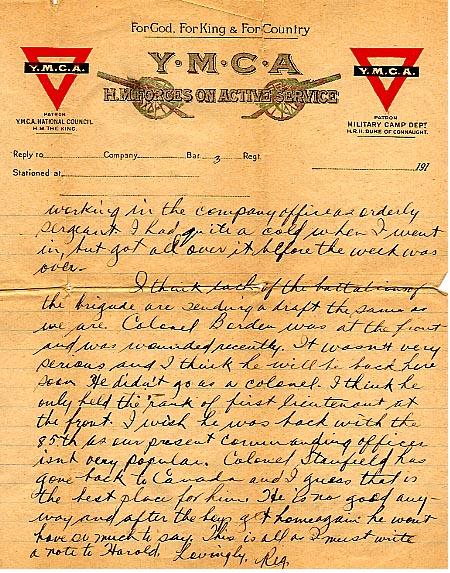 For God, For King & For Country
Y·M·C·A
H.M FORCES ON ACTIVE SERVICE
Y.M.C.A.
PATRON
Y.M.C.A. NATIONAL COUNCIL
H.M. THE KING.
Y.M.C.A.
PATRON
MILITARY CAMP DEPT
H.R.H. DUKE OF CONNAUGHT.
Reply to Company Bat. 3 Regt.
Stationed at 191
working in the company office as orderly
sergeant. I had quite a cold when I went
in, but got all over it before the week was
over.
I think each of the battalions of
the brigade are sending a draft the same as
we are. Colonel Borden was at the front
and was wounded recently. It wasn't very
serious and I think he will be back here
soon. He didn't go as a colonel. I think he
only held the rank of first lieutenant at
the front. I wish he was back with the
85th as our present commanding officer
isn't very popular. Colonel Stanfield has
gone back to Canada and I guess that is
the best place for him. He is no good any-
way and after the boys get home again he won't
have so much to say. This is all as I must write
a note to Harold. Lovingly, Reg.